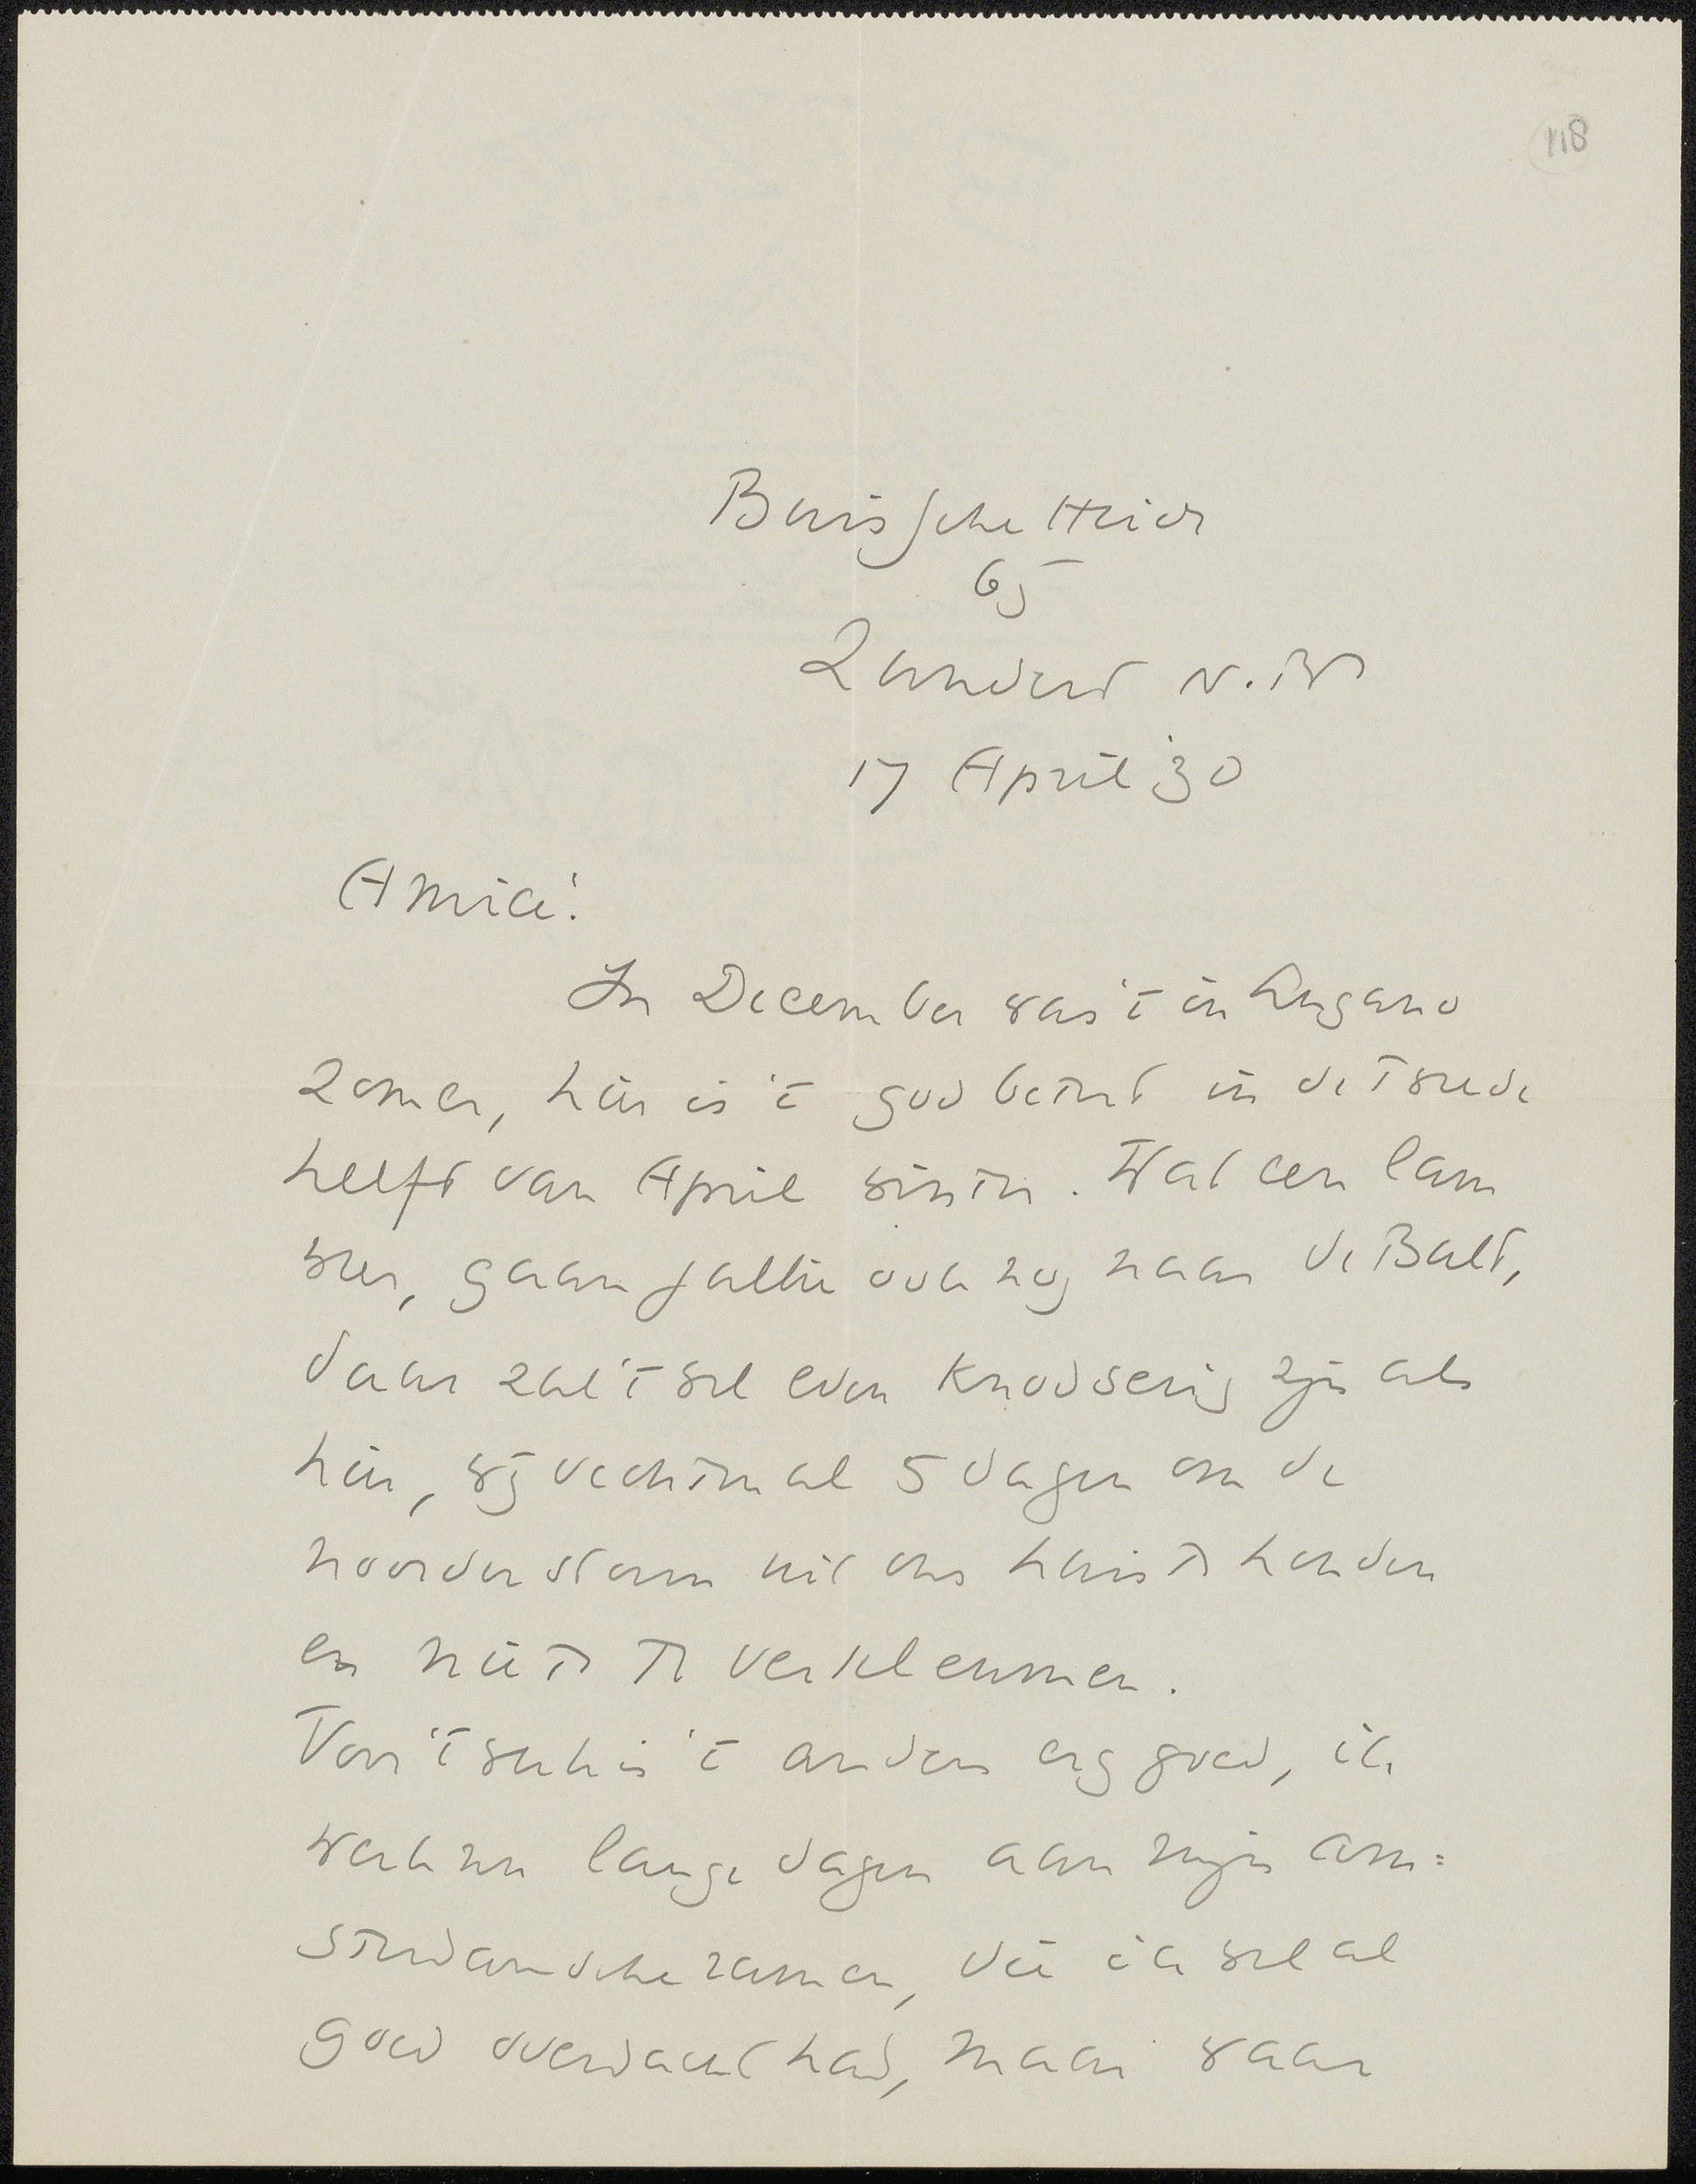 118
Buissche Heide
65
Zundert N.B.
17 April '30
Amice!
In December was 't in Lugano
zomer, hier is 't god betert in de tweede
helft van April winter. Wat een lam
weer, gaan jullie ook nog naar de Balt,
daar zal 't wel even knodserig zijn als
hier, wij vechten al 5 dagen om de
noorderstorm uit ons huis te houden
en niet te verkleumen.
Voor 't werk is 't anders erg goed, ik
werk nu lange dagen aan mijn Am=
sterdamsche ramen, die ik wel al
goed overdacht had, maar waar